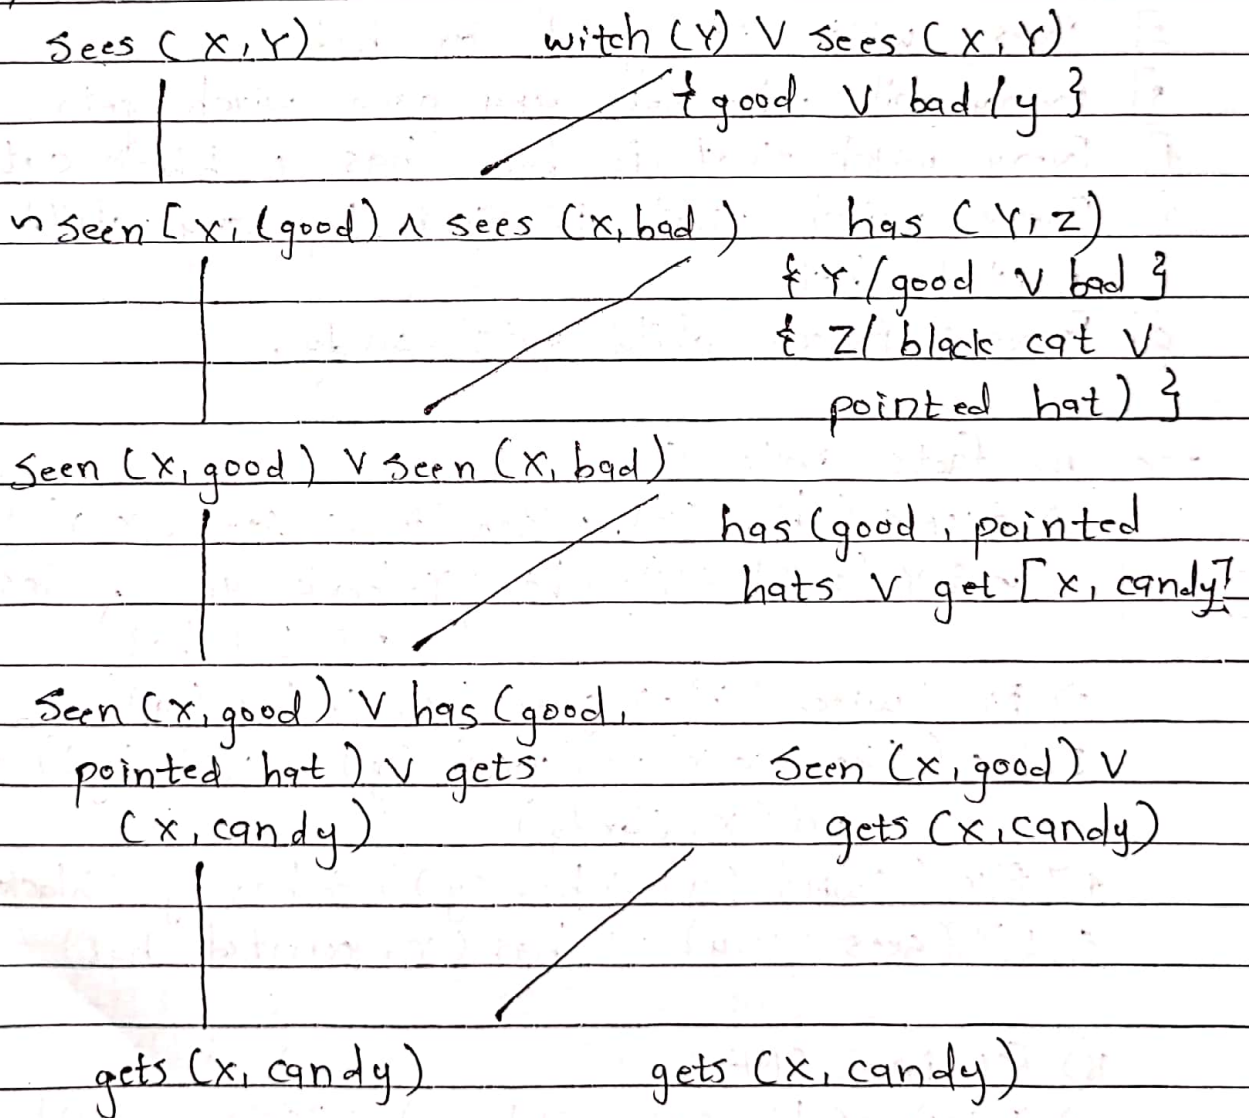 sees (X, Y) witch (Y) V sees (X, Y)
{ good V bad / y }
~ seen [ x, (good) ∧ sees (x, bad) has (Y, Z)
{ Y / good V bad }
{ Z / black cat V
pointed hat ) }
seen (X, good) V seen (X, bad)
has (good, pointed
hats V get [ x, candy ]
Seen (x, good) V has (good,
pointed hat ) V gets Seen (x, good) V
(x, candy) gets (x, candy)
gets (x, candy) gets (x, candy)